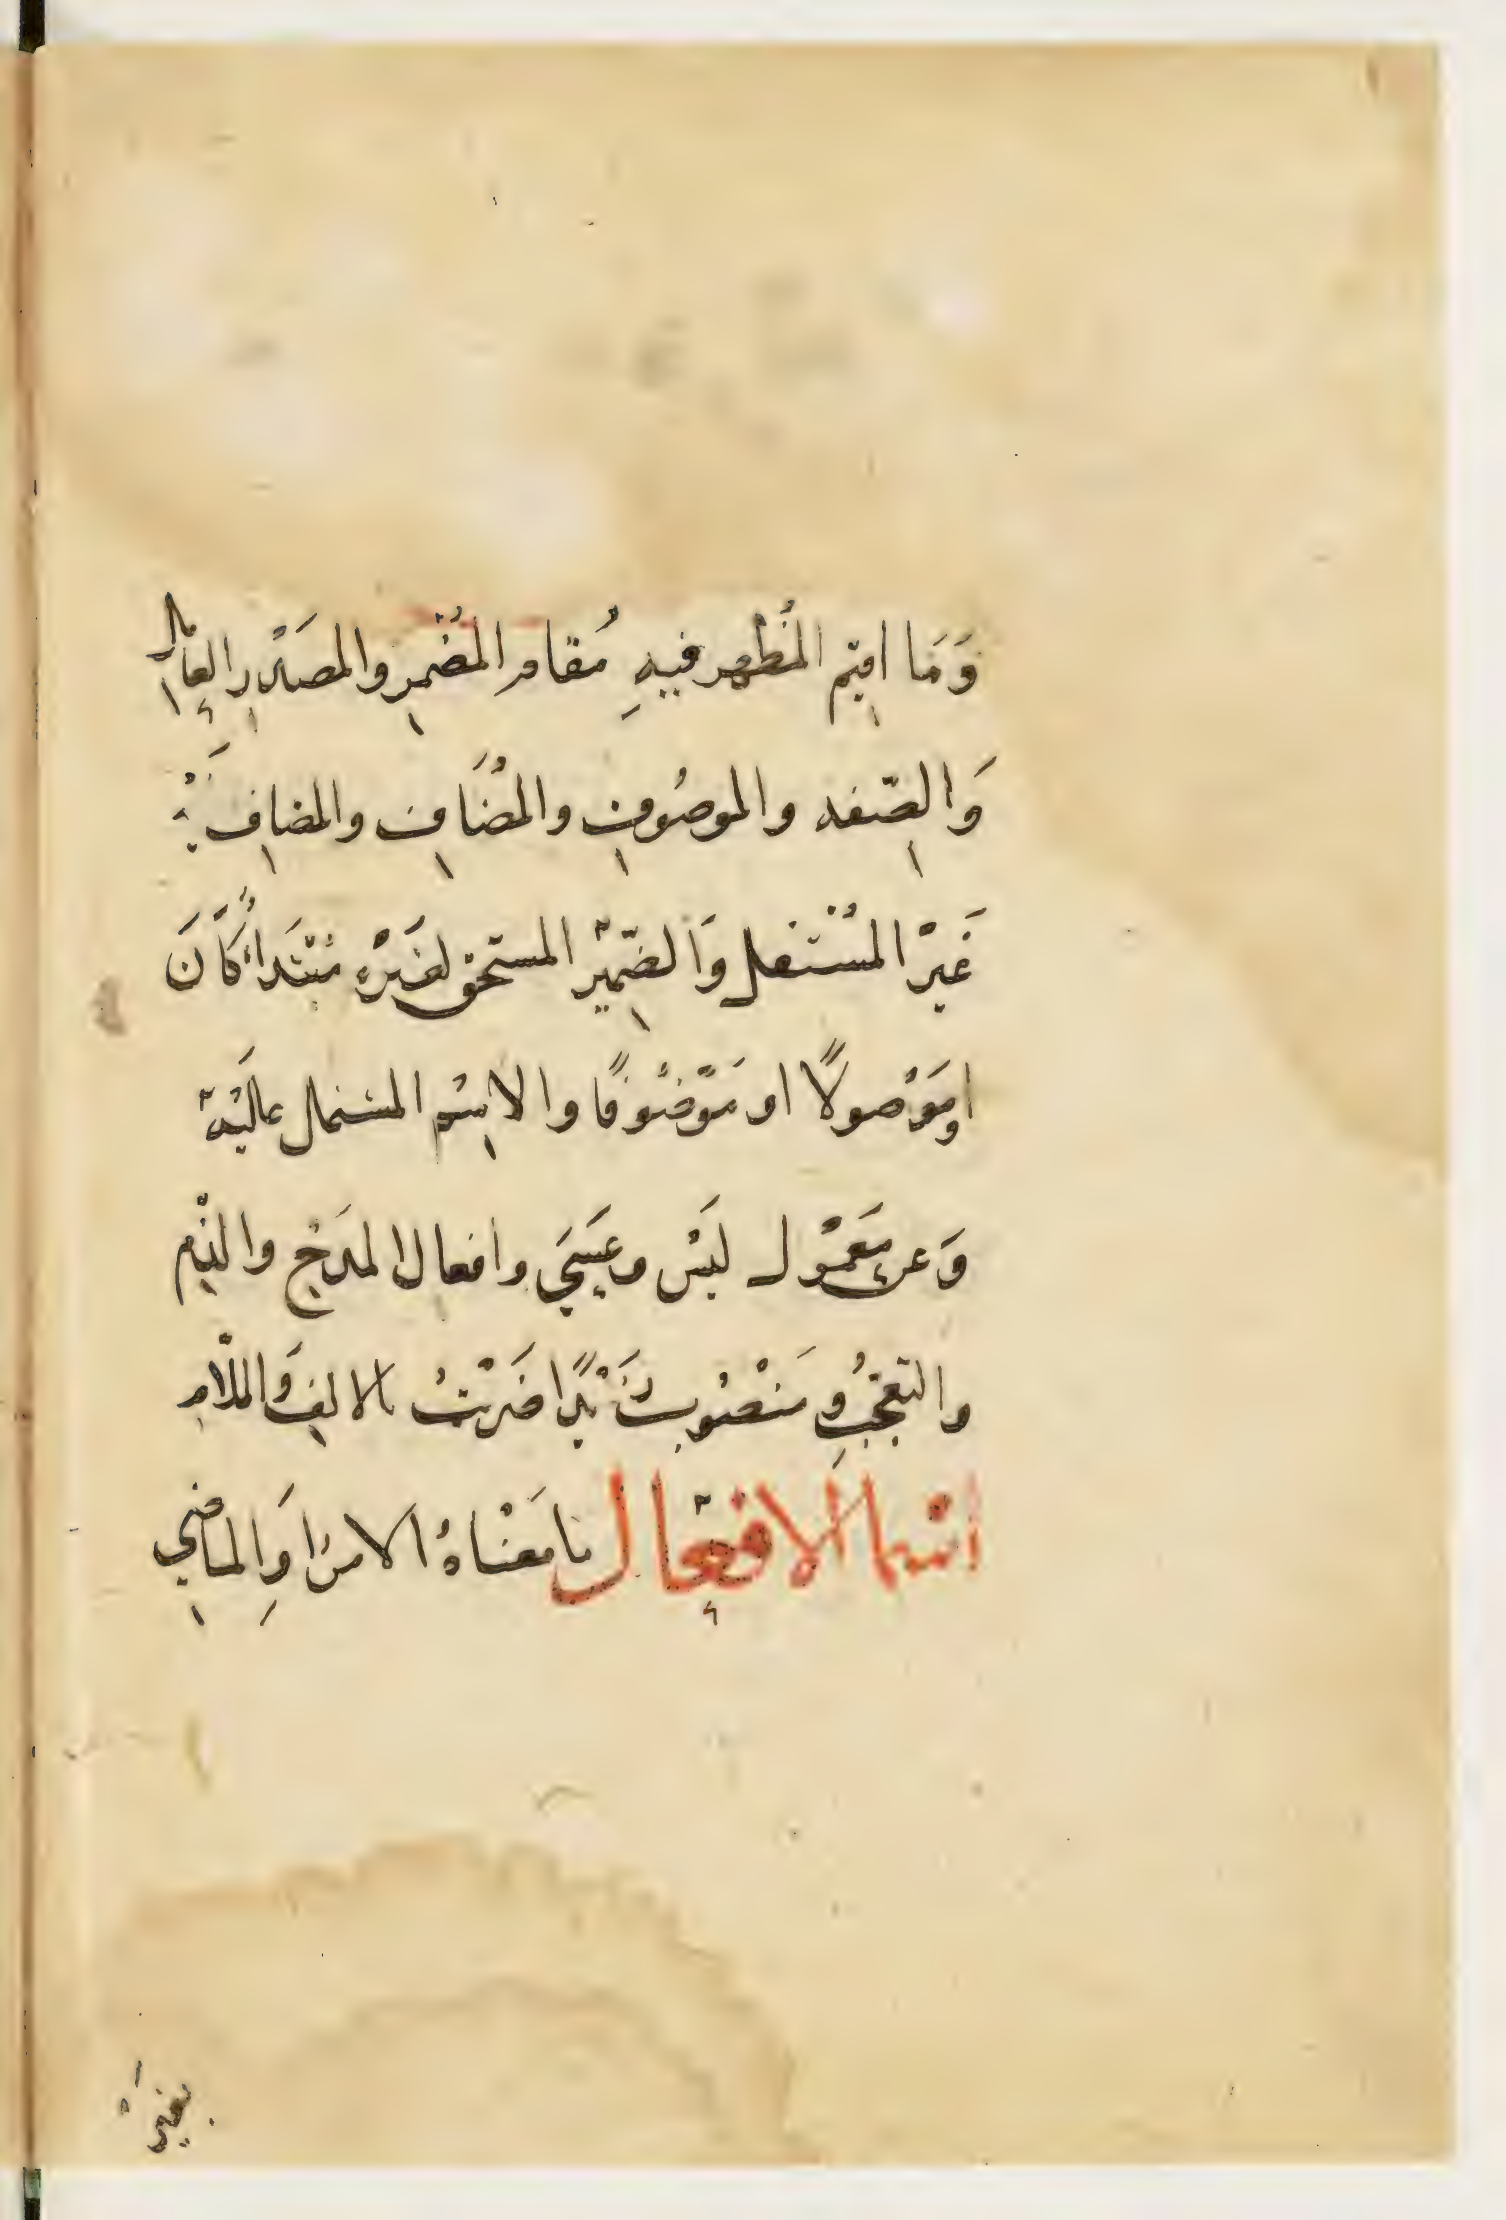 وَمَا اقيم المُظْهر فيهِ مُقام المُضْمرِ والمصَدْرِ العامل
وَالصّفه والموصُوفِ والمُضَافِ والمضافِ
غَيْر المُسْتقل وَالضّمِيْر المستحق لغَيْرهِ مُبْتَدأً كَانَ
او مَوْصولًا او مَوْصُوفًا والاسِم المشتمل عَليْه
وَعن مَعْمُول ليَسْ وعَسَىَ وافعال المدَحْ والذّم
والتعَجّبُ وِ مَنْصُوب زَيْدًا ضَرَبْتُ بالالفِ وَاللّامِ
اسْما الافعْال ما مَعْنَاهُ الامرُ اوَ الماضِي
بغيْرَ